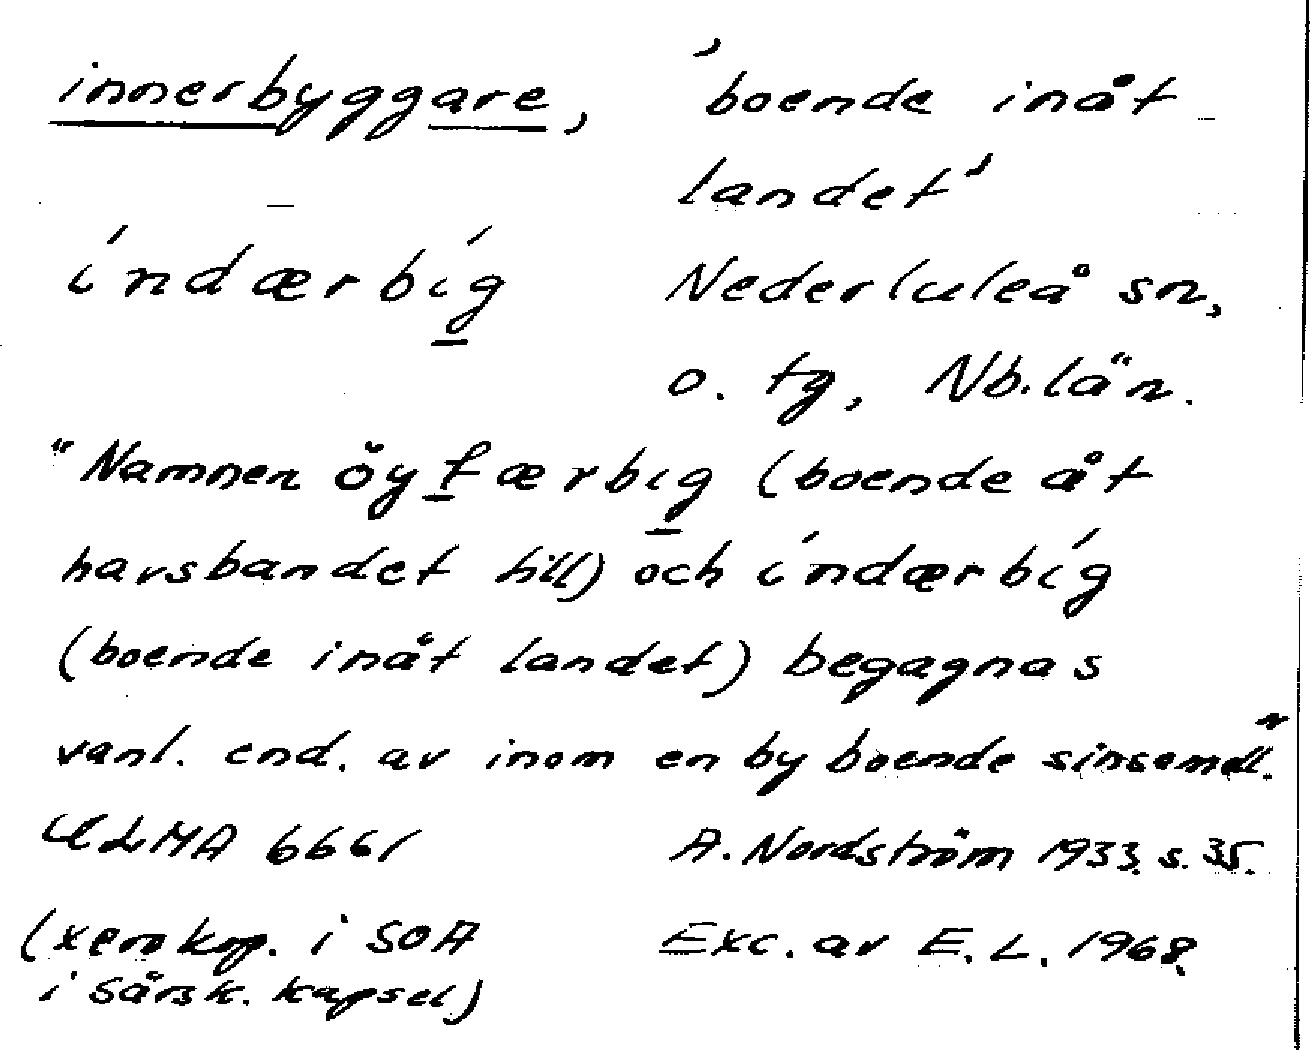 innerbyggare, 'boende inåt
landet'
índærbíg Nederluleå sn,
o. tg, Nb.län.
"Namnen öyfærbıg (boende åt
havsbandet till) och índærbíg
(boende inåt landet) begagnas
vanl. end. av inom en by boende sinsemell."
ULMA 6661 A. Nordström 1933. s. 35.
(xerokop. i SOA Exc. av E.L. 1968.
i särsk. kapsel)